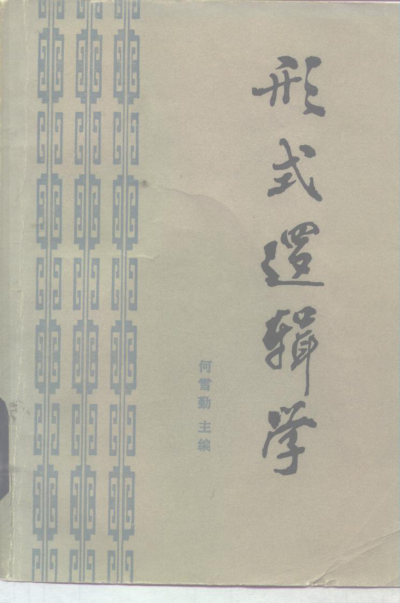 形式逻辑学
何雪勤 主编